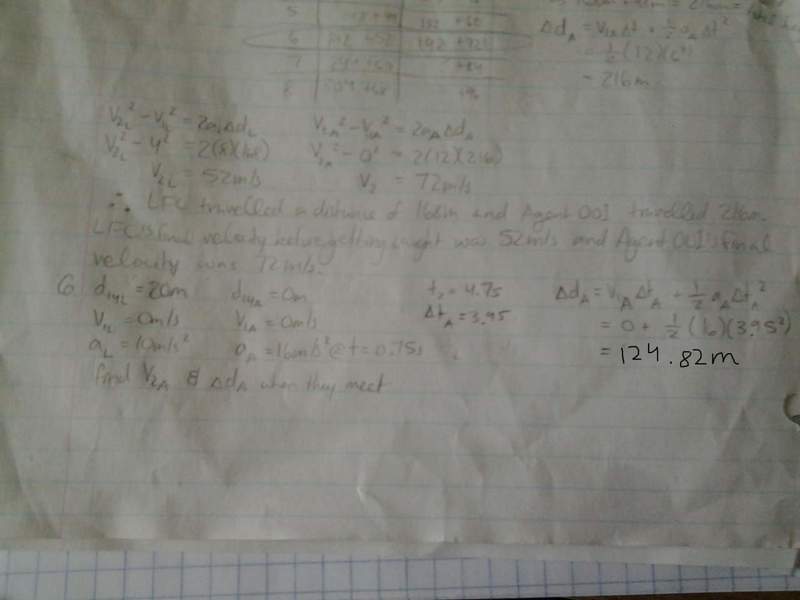 5
192 + 60
Δd_A = V_1A Δt + ½ a_A Δt²
6
192 + 92
= ½ (12)(6²)
7
+84
= 216m
8
+96
V_2L² - V_1L² = 2a_L Δd_L V_2A² - V_1A² = 2a_A Δd_A
V_2L² - 4² = 2(8)(168) V_2A² - 0² = 2(12)(216)
V_2L = 52m/s V_2 = 72m/s
∴ LFC travelled a distance of 168m and Agent 001 travelled 216m.
LFC's final velocity before getting caught was 52m/s and Agent 001's final
velocity was 72m/s.
6 d_1yL = 20m d_1yA = 0m t_2 = 4.75 Δd_A = V_1A Δt_A + ½ a_A Δt_A²
V_1L = 0m/s V_1A = 0m/s Δt_A = 3.95 = 0 + ½ (16)(3.95²)
a_L = 10m/s² a_A = 16m/s² @ t = 0.75s = 124.82m
find V_2A & Δd_A when they meet